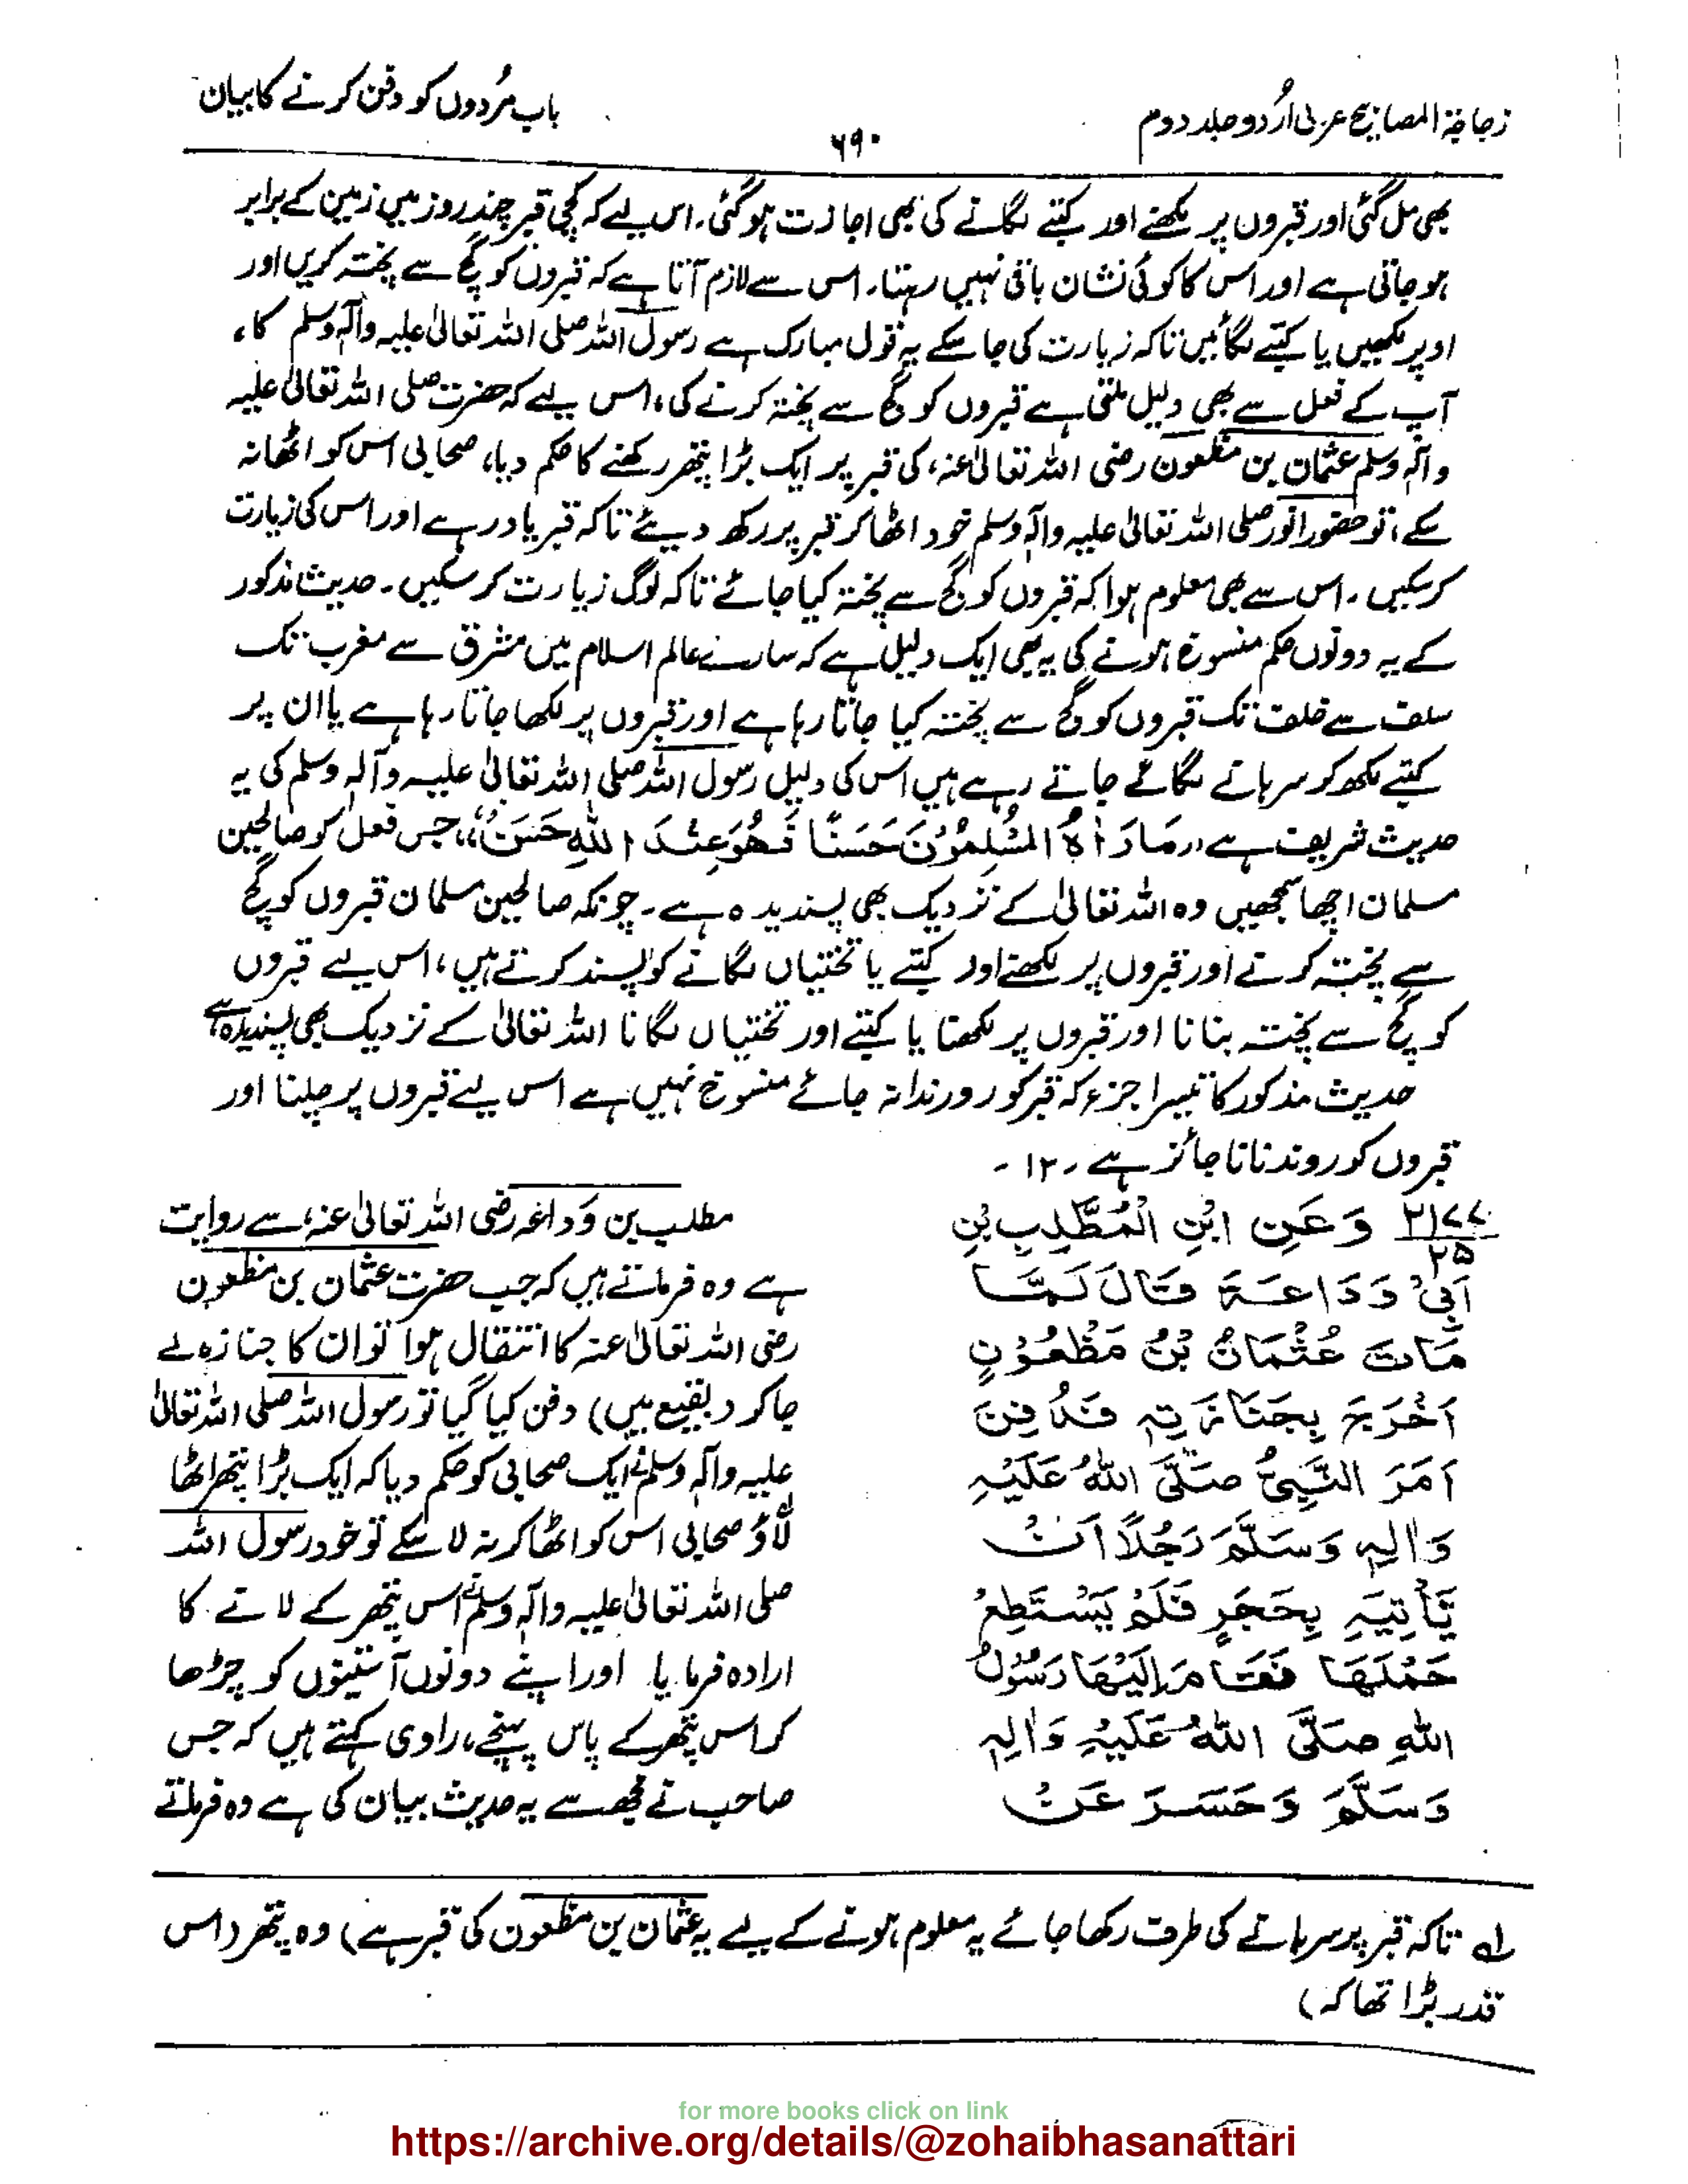 زجاجۃ المصابیح عربی اُردو جلد دوم
۶۹۰
باب مُردوں کو دفن کرنے کا بیان
بھی مل گئی اور قبروں پر لکھنے اور کتبے لگانے کی بھی اجازت ہوگئی۔ اس لیے کہ کچی قبر چند روز میں زمین کے برابر
ہو جاتی ہے اور اس کا کوئی نشان باقی نہیں رہتا۔ اس سے لازم آتا ہے کہ قبروں کو گچ سے پختہ کریں اور
اوپر لکھیں یا کتبے لگائیں تاکہ زیارت کی جا سکے یہ قول مبارک ہے رسول اللہ صلی اللہ تعالیٰ علیہ واٰلہٖ وسلم کا،
آپ کے فعل سے بھی دلیل ملتی ہے قبروں کو گچ سے پختہ کرنے کی، اس لیے کہ حضرت صلی اللہ تعالیٰ علیہ
واٰلہٖ وسلم عثمان بن مظعون رضی اللہ تعالیٰ عنہ، کی قبر پر ایک بڑا پتھر رکھنے کا حکم دیا، صحابی اس کو اٹھا نہ
سکے، تو حضور انور صلی اللہ تعالیٰ علیہ واٰلہٖ وسلم خود اٹھا کر قبر پر رکھ دیئے تاکہ قبر یاد رہے اور اس کی زیارت
کرسکیں۔ اس سے بھی معلوم ہوا کہ قبروں کو گچ سے پختہ کیا جائے تاکہ لوگ زیارت کرسکیں۔ حدیث مذکور
کے یہ دونوں حکم منسوخ ہونے کی یہ بھی ایک دلیل ہے کہ سارے عالم اسلام میں مشرق سے مغرب تک
سلف سے خلف تک قبروں کو گچ سے پختہ کیا جاتا رہا ہے اور قبروں پر لکھا جاتا رہا ہے یا ان پر
کتبے لکھ کر سرہانے لگائے جاتے رہے ہیں اس کی دلیل رسول اللہ صلی اللہ تعالیٰ علیہ وآلہٖ وسلم کی یہ
حدیث شریف ہے ”مَا رَاٰہُ الْمُسْلِمُوْنَ حَسَنًا فَھُوَ عِنْدَ اللّٰہِ حَسَنٌ“، جس فعل کو صالحین
مسلمان اچھا سمجھیں وہ اللہ تعالیٰ کے نزدیک بھی پسندیدہ ہے۔ چونکہ صالحین مسلمان قبروں کو گچ
سے پختہ کرتے اور قبروں پر لکھتے اور کتبے یا تختیاں لگانے کو پسند کرتے ہیں، اس لیے قبروں
کو گچ سے پختہ بنانا اور قبروں پر لکھنا یا کتبے اور تختیاں لگانا اللہ تعالیٰ کے نزدیک بھی پسندیدہ ہے
حدیث مذکور کا تیسرا جزء کہ قبر کو روندا نہ جائے منسوخ نہیں ہے اس لیے قبروں پر چلنا اور
قبروں کو روندنا ناجائز ہے۔ ۱۲۔
۲۱۷۷
۲۵
وَعَنِ ابْنِ الْمُطَّلِبِ بْنِ
اَبِیْ وَدَاعَۃَ قَالَ لَمَّا
مَاتَ عُثْمَانُ بْنُ مَظْعُوْنٍ
اُخْرِجَ بِجَنَازَتِہٖ فَدُفِنَ
اَمَرَ النَّبِیُّ صَلَّی اللّٰہُ عَلَیْہِ
وَاٰلِہٖ وَسَلَّمَ رَجُلًا اَنْ
یَّأْتِیَہٗ بِحَجَرٍ فَلَمْ یَسْتَطِعْ
حَمْلَھَا فَقَامَ اِلَیْھَا رَسُوْلُ
اللّٰہِ صَلَّی اللّٰہُ عَلَیْہِ وَاٰلِہٖ
وَسَلَّمَ وَحَسَرَ عَنْ
مطلب بن وَداعہ رضی اللہ تعالیٰ عنہ، سے روایت
ہے وہ فرماتے ہیں کہ جب حضرت عثمان بن مظعون
رضی اللہ تعالیٰ عنہ کا انتقال ہوا تو ان کا جنازہ لے
جاکر (بقیع میں) دفن کیا گیا تو رسول اللہ صلی اللہ تعالیٰ
علیہ واٰلہٖ وسلم نے ایک صحابی کو حکم دیا کہ ایک بڑا پتھر اٹھا
لاؤ صحابی اس کو اٹھا کر نہ لا سکے تو خود رسول اللہ
صلی اللہ تعالیٰ علیہ واٰلہٖ وسلم نے اس پتھر کے لانے کا
ارادہ فرمایا اور اپنے دونوں آستینوں کو چڑھا
کر اس پتھر کے پاس پہنچے، راوی کہتے ہیں کہ جس
صاحب نے مجھ سے یہ حدیث بیان کی ہے وہ فرماتے
لہ تاکہ قبر پر سرہانے کی طرف رکھا جائے یہ معلوم ہونے کے لیے یہ عثمان بن مظعون کی قبر ہے) وہ پتھر (اس
قدر بڑا تھا کہ)
for more books click on link
https://archive.org/details/@zohaibhasanattari